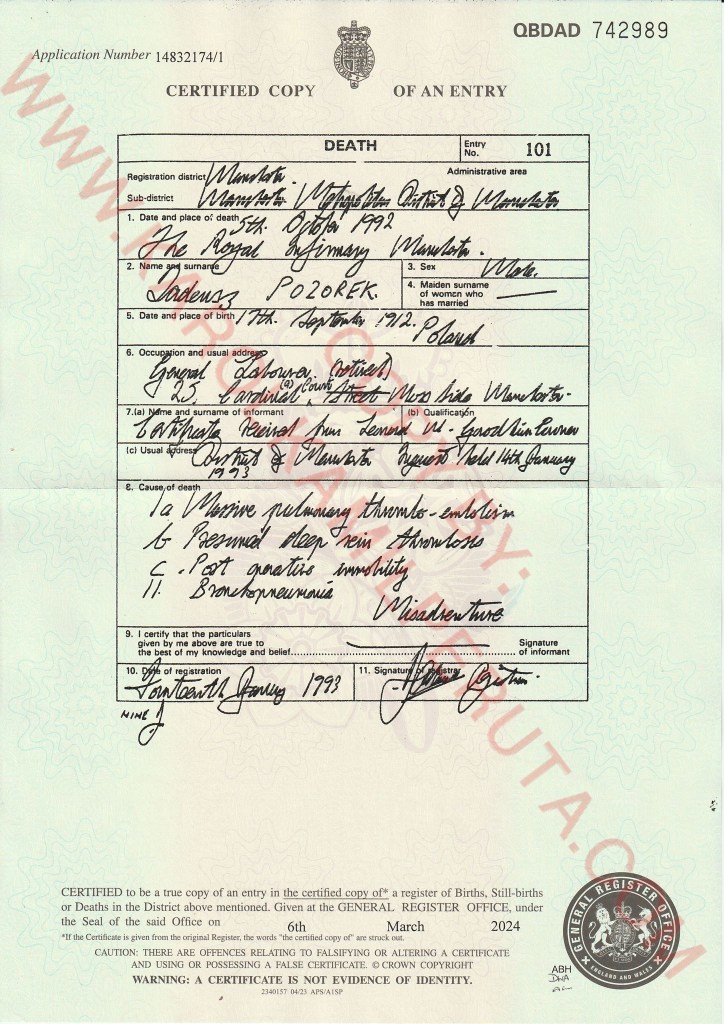 QBDAD 742989
Application Number 14832174/1
CERTIFIED COPY OF AN ENTRY
DEATH
Entry No. 101
Registration district Manchester
Administrative area
Sub-district Manchester Metropolitan District of Manchester
1. Date and place of death 5th. October 1992
The Royal Infirmary Manchester.
2. Name and surname
Tadeusz POZOREK.
3. Sex Male.
4. Maiden surname of women who has married
5. Date and place of birth 17th. September 1912. Poland
6. Occupation and usual address
General Labourer (retired)
25, Cardinal (a) Court Street Moss Side Manchester.
7.(a) Name and surname of informant
(b) Qualification
Certificate received from Leonard Coroner
(c) Usual address District of Manchester Inquest held 14th January
1993
8. Cause of death
1a Massive pulmonary thrombo-embolism
b Presumed deep vein thrombosis
c. Post operative immobility
11. Bronchopneumonia
Misadventure
9. I certify that the particulars
given by me above are true to
the best of my knowledge and belief
Signature of informant
10. Date of registration
11. Signature of registrar
January 1993
Registrar.
NINE
CERTIFIED to be a true copy of an entry in the certified copy of* a register of Births, Still-births
or Deaths in the District above mentioned. Given at the GENERAL REGISTER OFFICE, under
the Seal of the said Office on 6th March 2024
*If the Certificate is given from the original Register, the words "the certified copy of" are struck out.
CAUTION: THERE ARE OFFENCES RELATING TO FALSIFYING OR ALTERING A CERTIFICATE
AND USING OR POSSESSING A FALSE CERTIFICATE. © CROWN COPYRIGHT
WARNING: A CERTIFICATE IS NOT EVIDENCE OF IDENTITY.
2340157 04/23 APS/A1SP
GENERAL REGISTER OFFICE
ENGLAND AND WALES
ABH
DHA